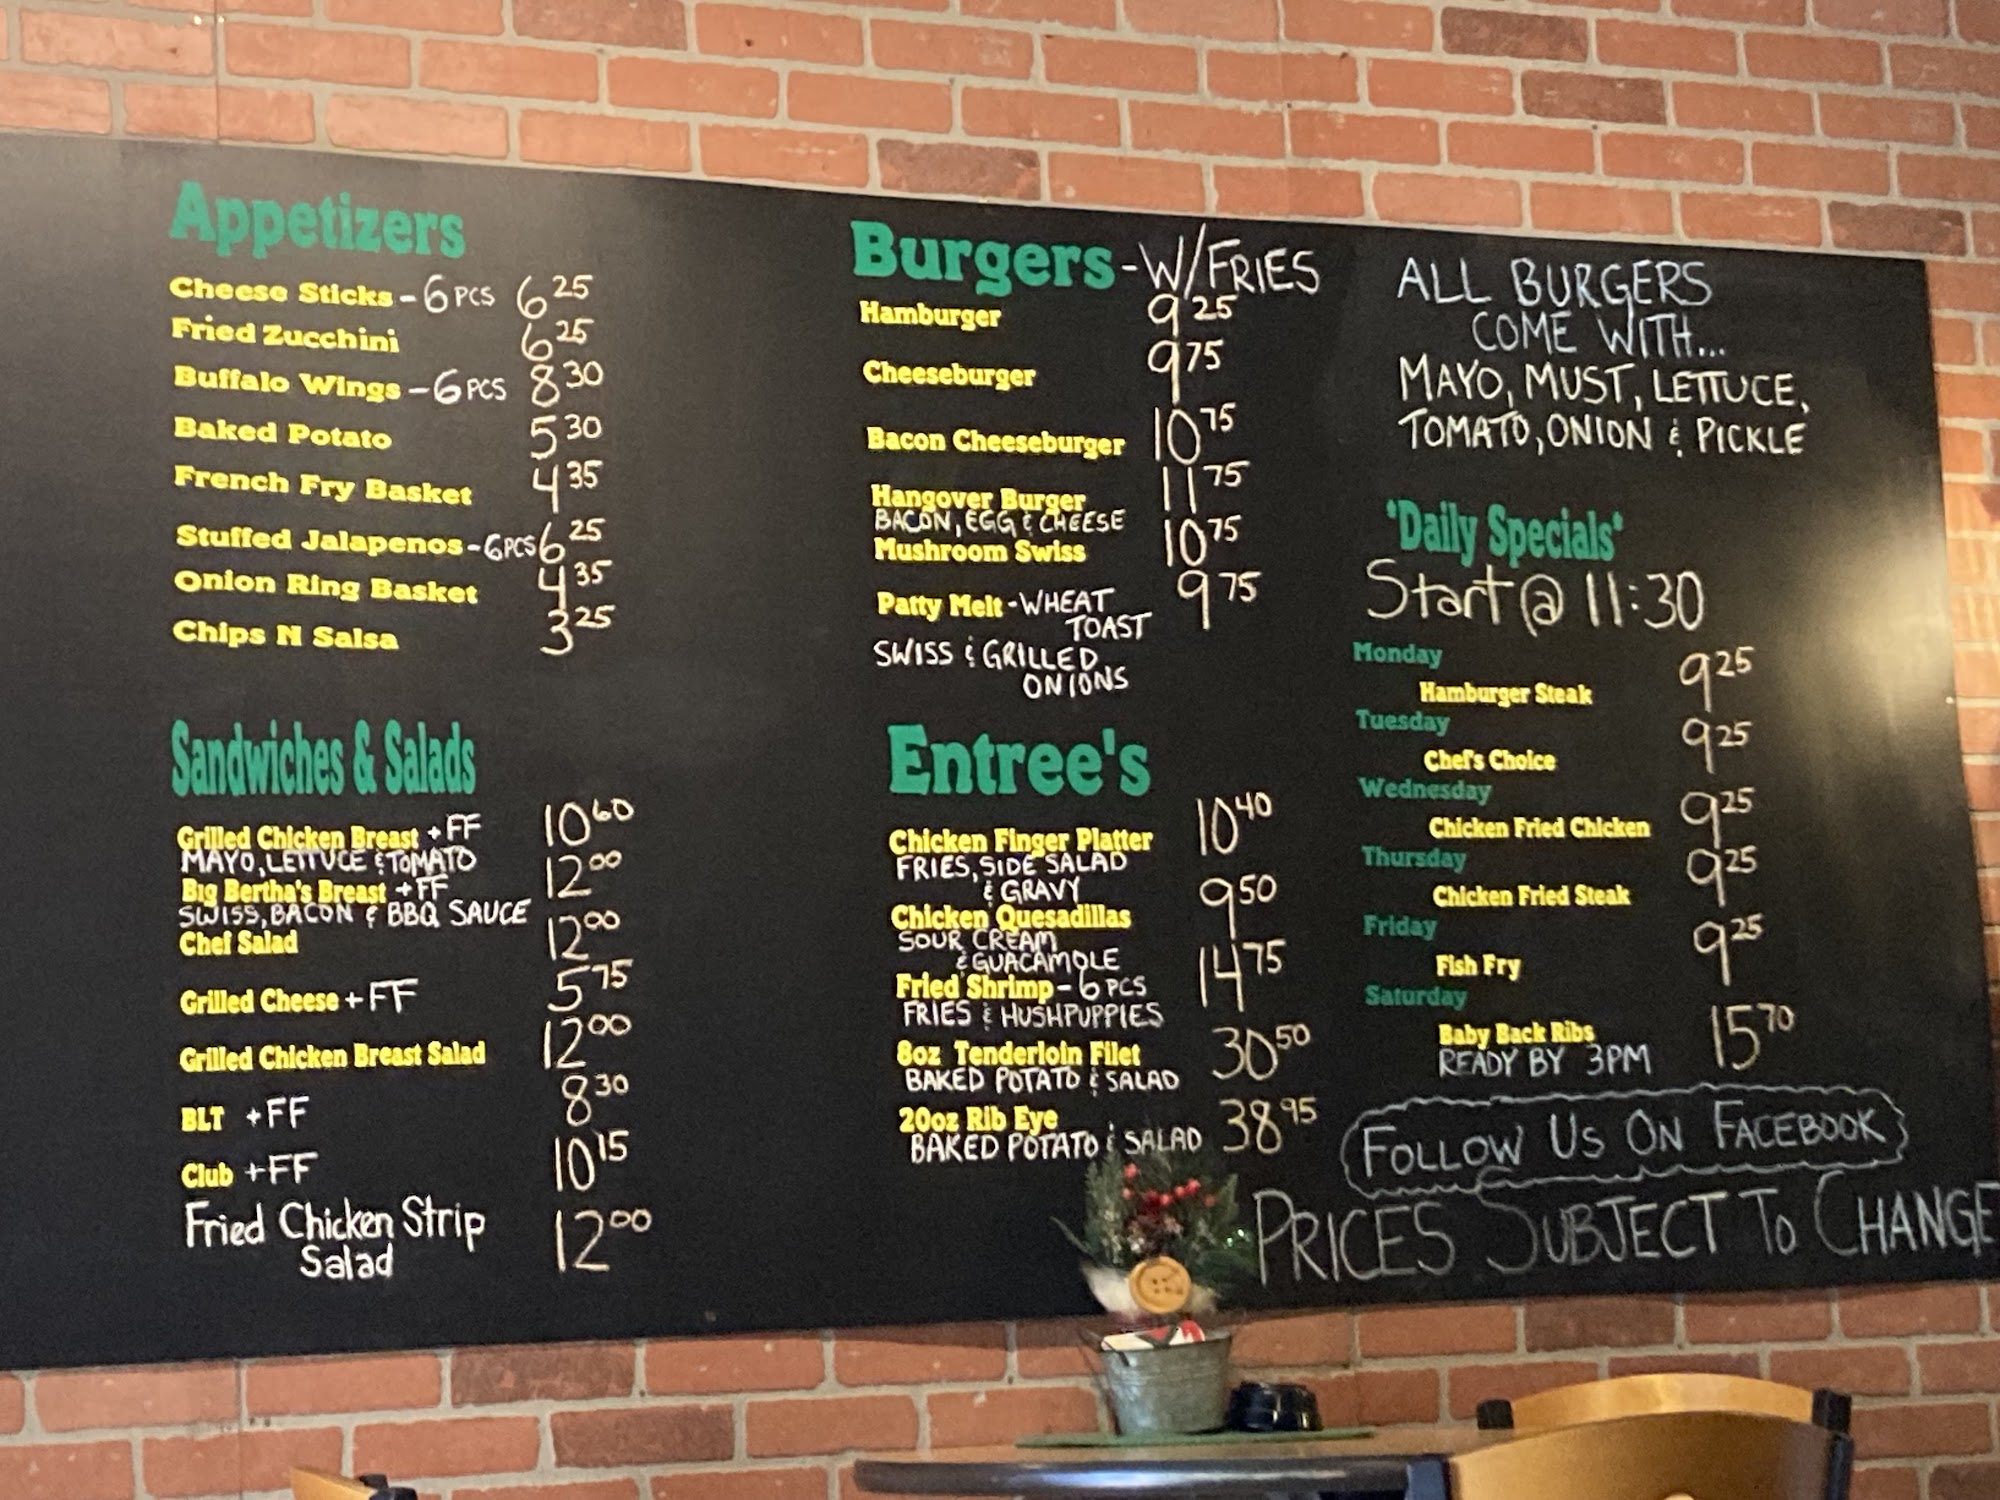 Appetizers
Cheese Sticks - 6 PCS 6 25
Fried Zucchini 6 25
Buffalo Wings - 6 PCS 8 30
Baked Potato 5 30
French Fry Basket 4 35
Stuffed Jalapenos - 6 PCS 6 25
Onion Ring Basket 4 35
Chips N Salsa 3 25
Sandwiches & Salads
Grilled Chicken Breast + FF 10 60
MAYO, LETTUCE & TOMATO
Big Bertha's Breast + FF 12 00
SWISS, BACON & BBQ SAUCE
Chef Salad 12 00
Grilled Cheese + FF 5 75
Grilled Chicken Breast Salad 12 00
BLT + FF 8 30
Club + FF 10 15
Fried Chicken Strip 12 00
Salad
Burgers - W/ FRIES
Hamburger 9 25
Cheeseburger 9 75
Bacon Cheeseburger 10 75
Hangover Burger 11 75
BACON, EGG & CHEESE
Mushroom Swiss 10 75
Patty Melt - WHEAT 9 75
TOAST
SWISS & GRILLED
ONIONS
Entree's
Chicken Finger Platter 10 40
FRIES, SIDE SALAD
& GRAVY
Chicken Quesadillas 9 50
SOUR CREAM
& GUACAMOLE
Fried Shrimp - 6 PCS 14 75
FRIES & HUSHPUPPIES
8oz Tenderloin Filet 30 50
BAKED POTATO & SALAD
20oz Rib Eye 38 95
BAKED POTATO & SALAD
ALL BURGERS
COME WITH...
MAYO, MUST, LETTUCE,
TOMATO, ONION & PICKLE
'Daily Specials'
Start @ 11:30
Monday
Hamburger Steak 9 25
Tuesday
Chef's Choice 9 25
Wednesday
Chicken Fried Chicken 9 25
Thursday
Chicken Fried Steak 9 25
Friday
Fish Fry 9 25
Saturday
Baby Back Ribs 15 70
READY BY 3PM
FOLLOW US ON FACEBOOK
PRICES SUBJECT TO CHANGE